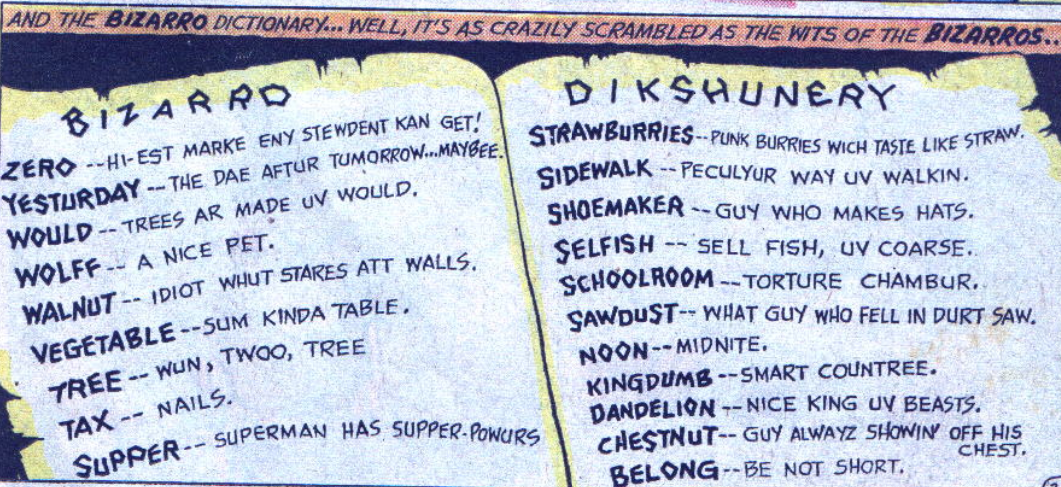 AND THE BIZARRO DICTIONARY... WELL, IT'S AS CRAZILY SCRAMBLED AS THE WITS OF THE BIZARROS...
BIZARRO
ZERO -- HI-EST MARKE ENY STEWDENT KAN GET!
YESTURDAY -- THE DAE AFTUR TUMORROW...MAYBEE.
WOULD -- TREES AR MADE UV WOULD.
WOLFF -- A NICE PET.
WALNUT -- IDIOT WHUT STARES ATT WALLS.
VEGETABLE -- SUM KINDA TABLE.
TREE -- WUN, TWOO, TREE
TAX -- NAILS.
SUPPER -- SUPERMAN HAS SUPPER-POWURS
DIKSHUNERY
STRAWBURRIES -- PUNK BURRIES WICH TASTE LIKE STRAW.
SIDEWALK -- PECULYUR WAY UV WALKIN.
SHOEMAKER -- GUY WHO MAKES HATS.
SELFISH -- SELL FISH, UV COARSE.
SCHOOLROOM -- TORTURE CHAMBUR.
SAWDUST -- WHAT GUY WHO FELL IN DURT SAW.
NOON -- MIDNITE.
KINGDUMB -- SMART COUNTREE.
DANDELION -- NICE KING UV BEASTS.
CHESTNUT -- GUY ALWAYZ SHOWIN' OFF HIS
CHEST.
BELONG -- BE NOT SHORT.